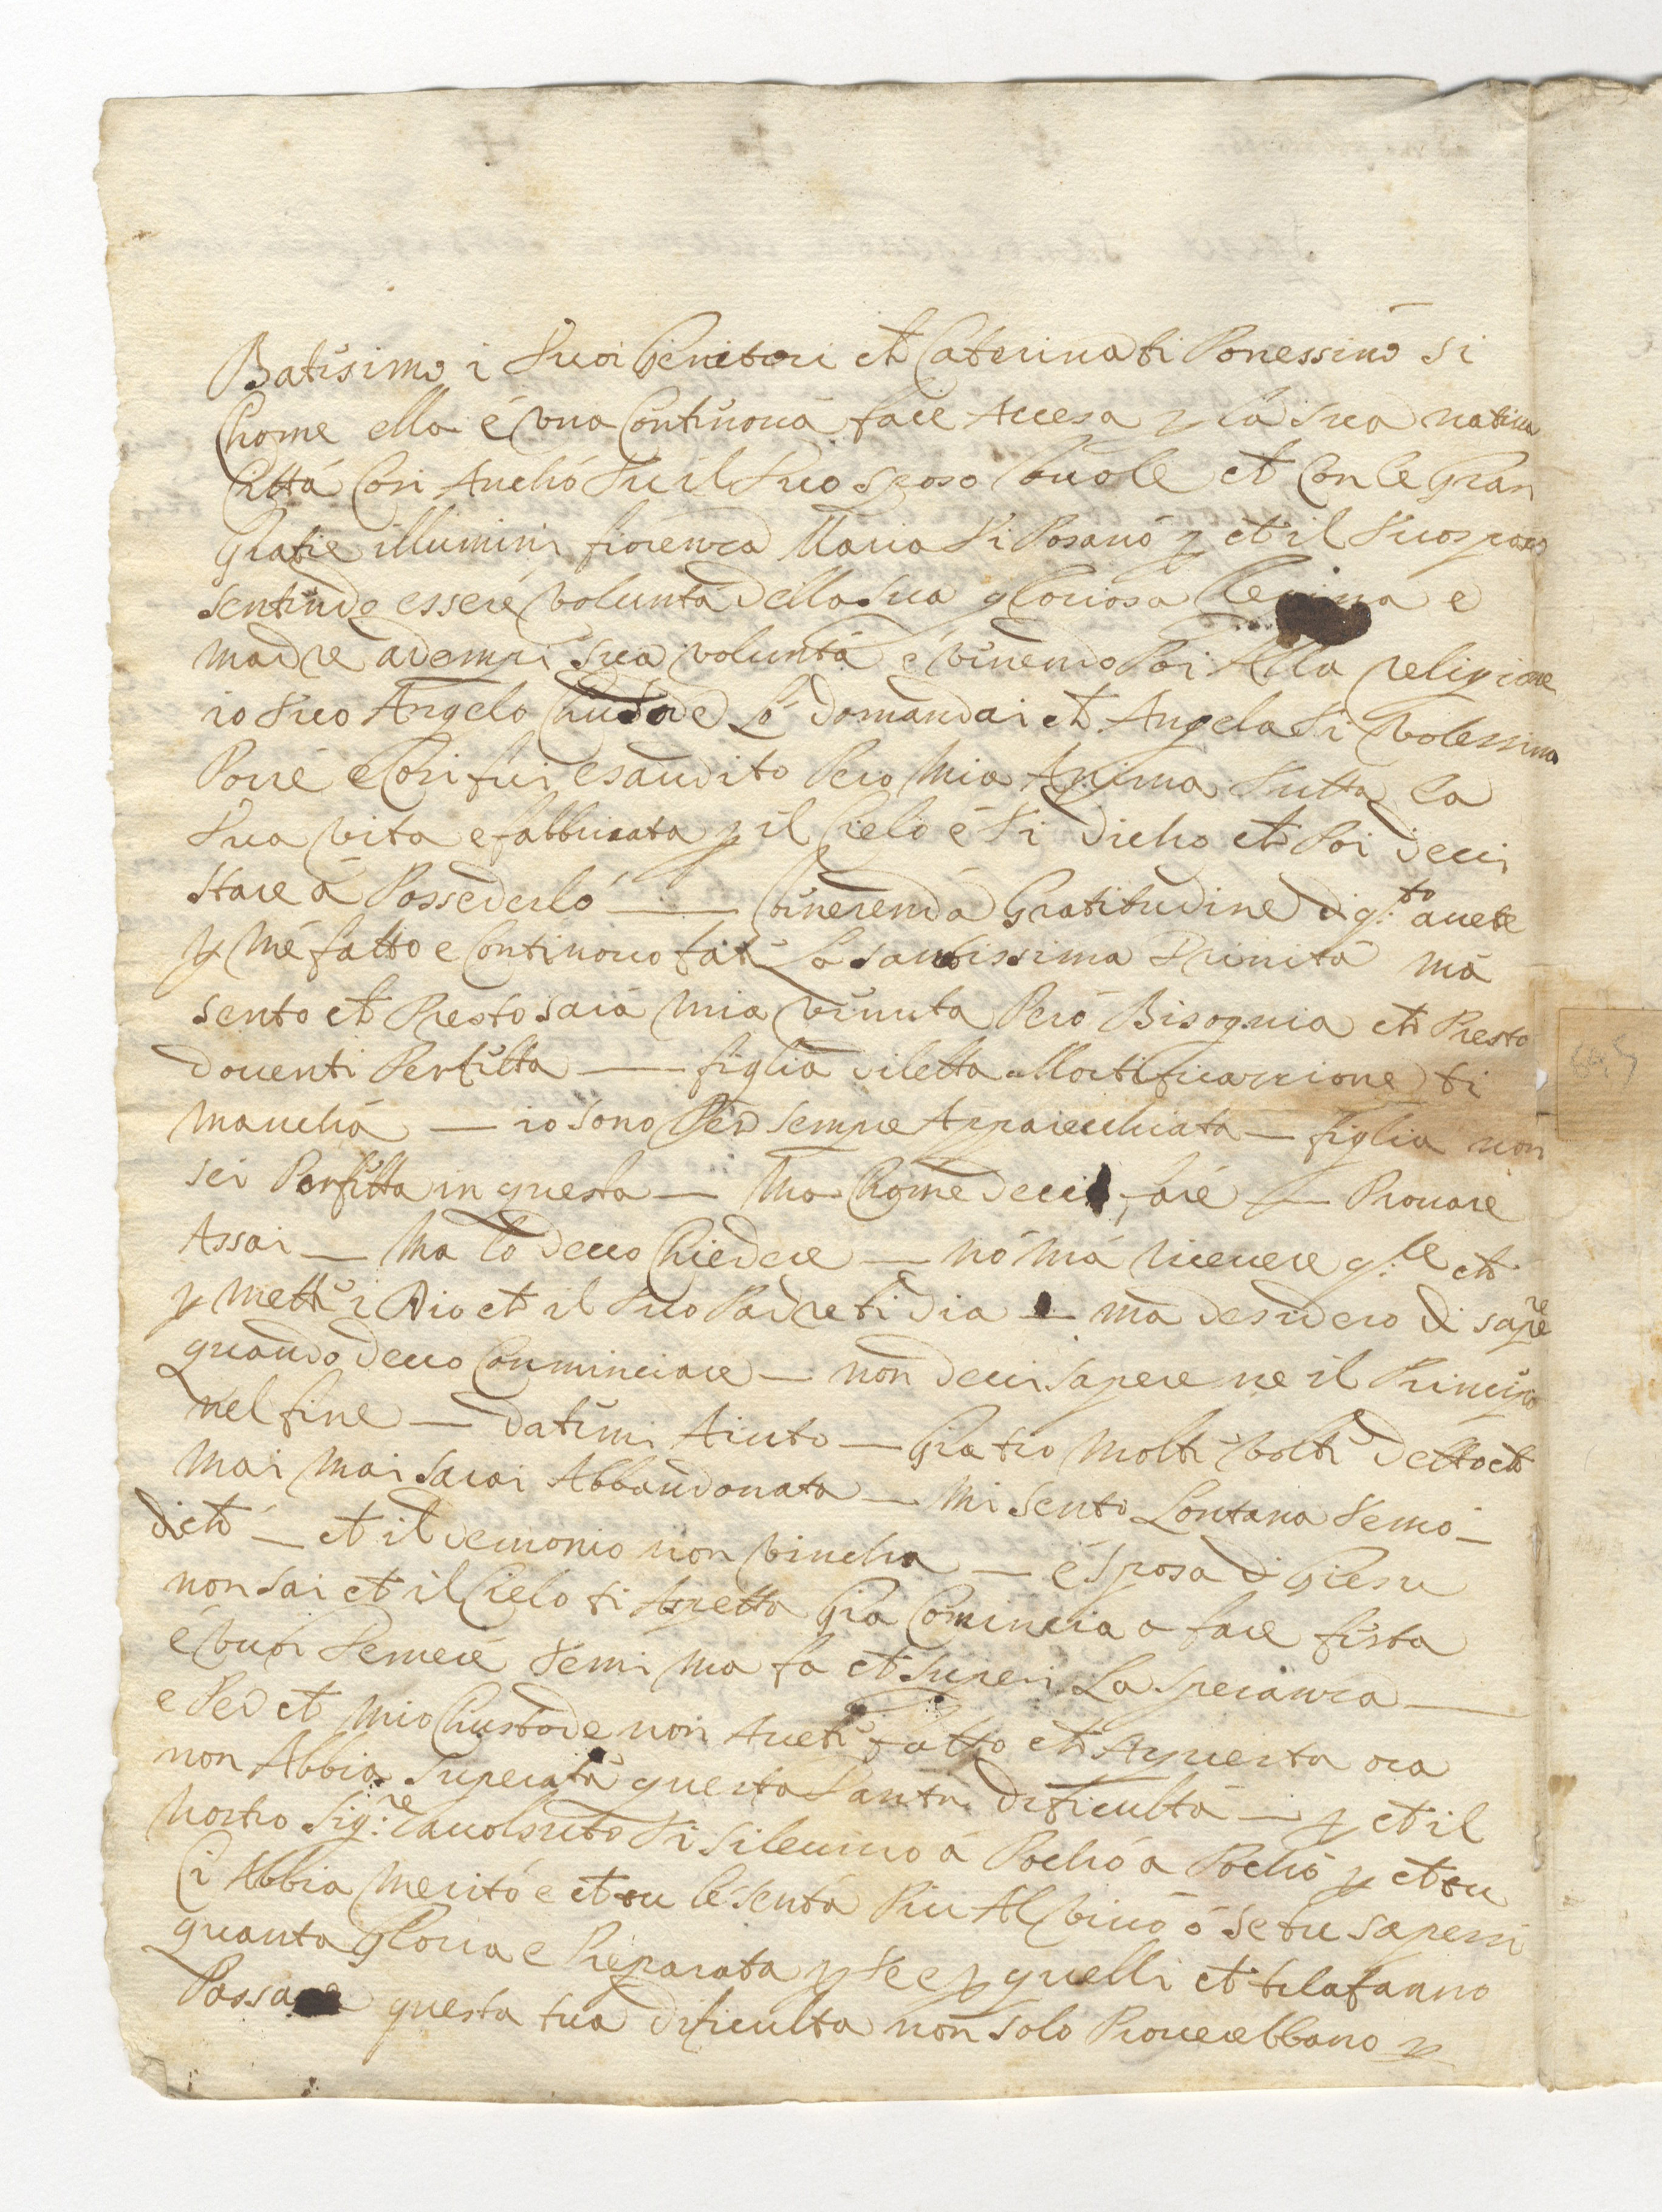 Batisimo i Suoi Genitori ch Caterina ti Ponessino si
Chome ella é una Continoua face Accesa p la sua natiua
Città Cosi Anchó tu il tuo sposo Vuole ch Con le Gran
Gratie illumini fiorenza Maria ti Posanó p ch il tuo sposo
sentendo essere voluntà della sua gloriosa e
madre adempi sua voluntá é vinendo Poi Alla religione
io tuo Angelo Chustode Ló domandai ch Angela ti volessino
Porre e Cosi fui esaudito Pero Mia Anima tutta la
tua vita e fabbricata p il Cielo é ti dicho ch Poi deui
stare á Possederló — Vinerendá Gratitudine di q.to auete
p mé fatto e Continouo fate la santissima Trinitá má
sento ch Presto sará mia vinuta Peró Bisognia ch Presto
douenti Perfetta — figlia diletta Mortificazzione ti
mancha — io sono Per sempre Apparecchiata — figlia non
sei Perfetta in questa — Ma Chome deui fare — Prouare
Assai — Ma lo deuo Chiedere — nó má riceuere q.le ch
p mette i Dio ch il tuo Padre ti dia — ma desidero di sap.re
quando deuo Cominciare — non deui sapere ne il Principio
nel fine — datemi Aiuto — Gia tio molte volte detto ch
Mai Mai sarai Abbandonata — Mi sento Lontana temo —
di ch — ch il demonio non vincha — é sposa di Giesu
non sai ch il Cielo ti Aspetta Gia Comincia a fare festa
é vuoi temere temi ma fa ch superi La speranza —
e Per ch mio Chustode non Auete fatto ch Aquesta ora
non Abbia Superata questa tanta dificultá — p ch il
Nostro Sig.re ti si leuino á Pochó a Pochó p ch tu
Ci Abbia Meritó e ch tu le senta Piu Al viuó ó se tu sapessi
quanta Gloria e Preparata p te e p quelli ch te la fanno
Passare questa tua dificulta non solo Prouerebbano p